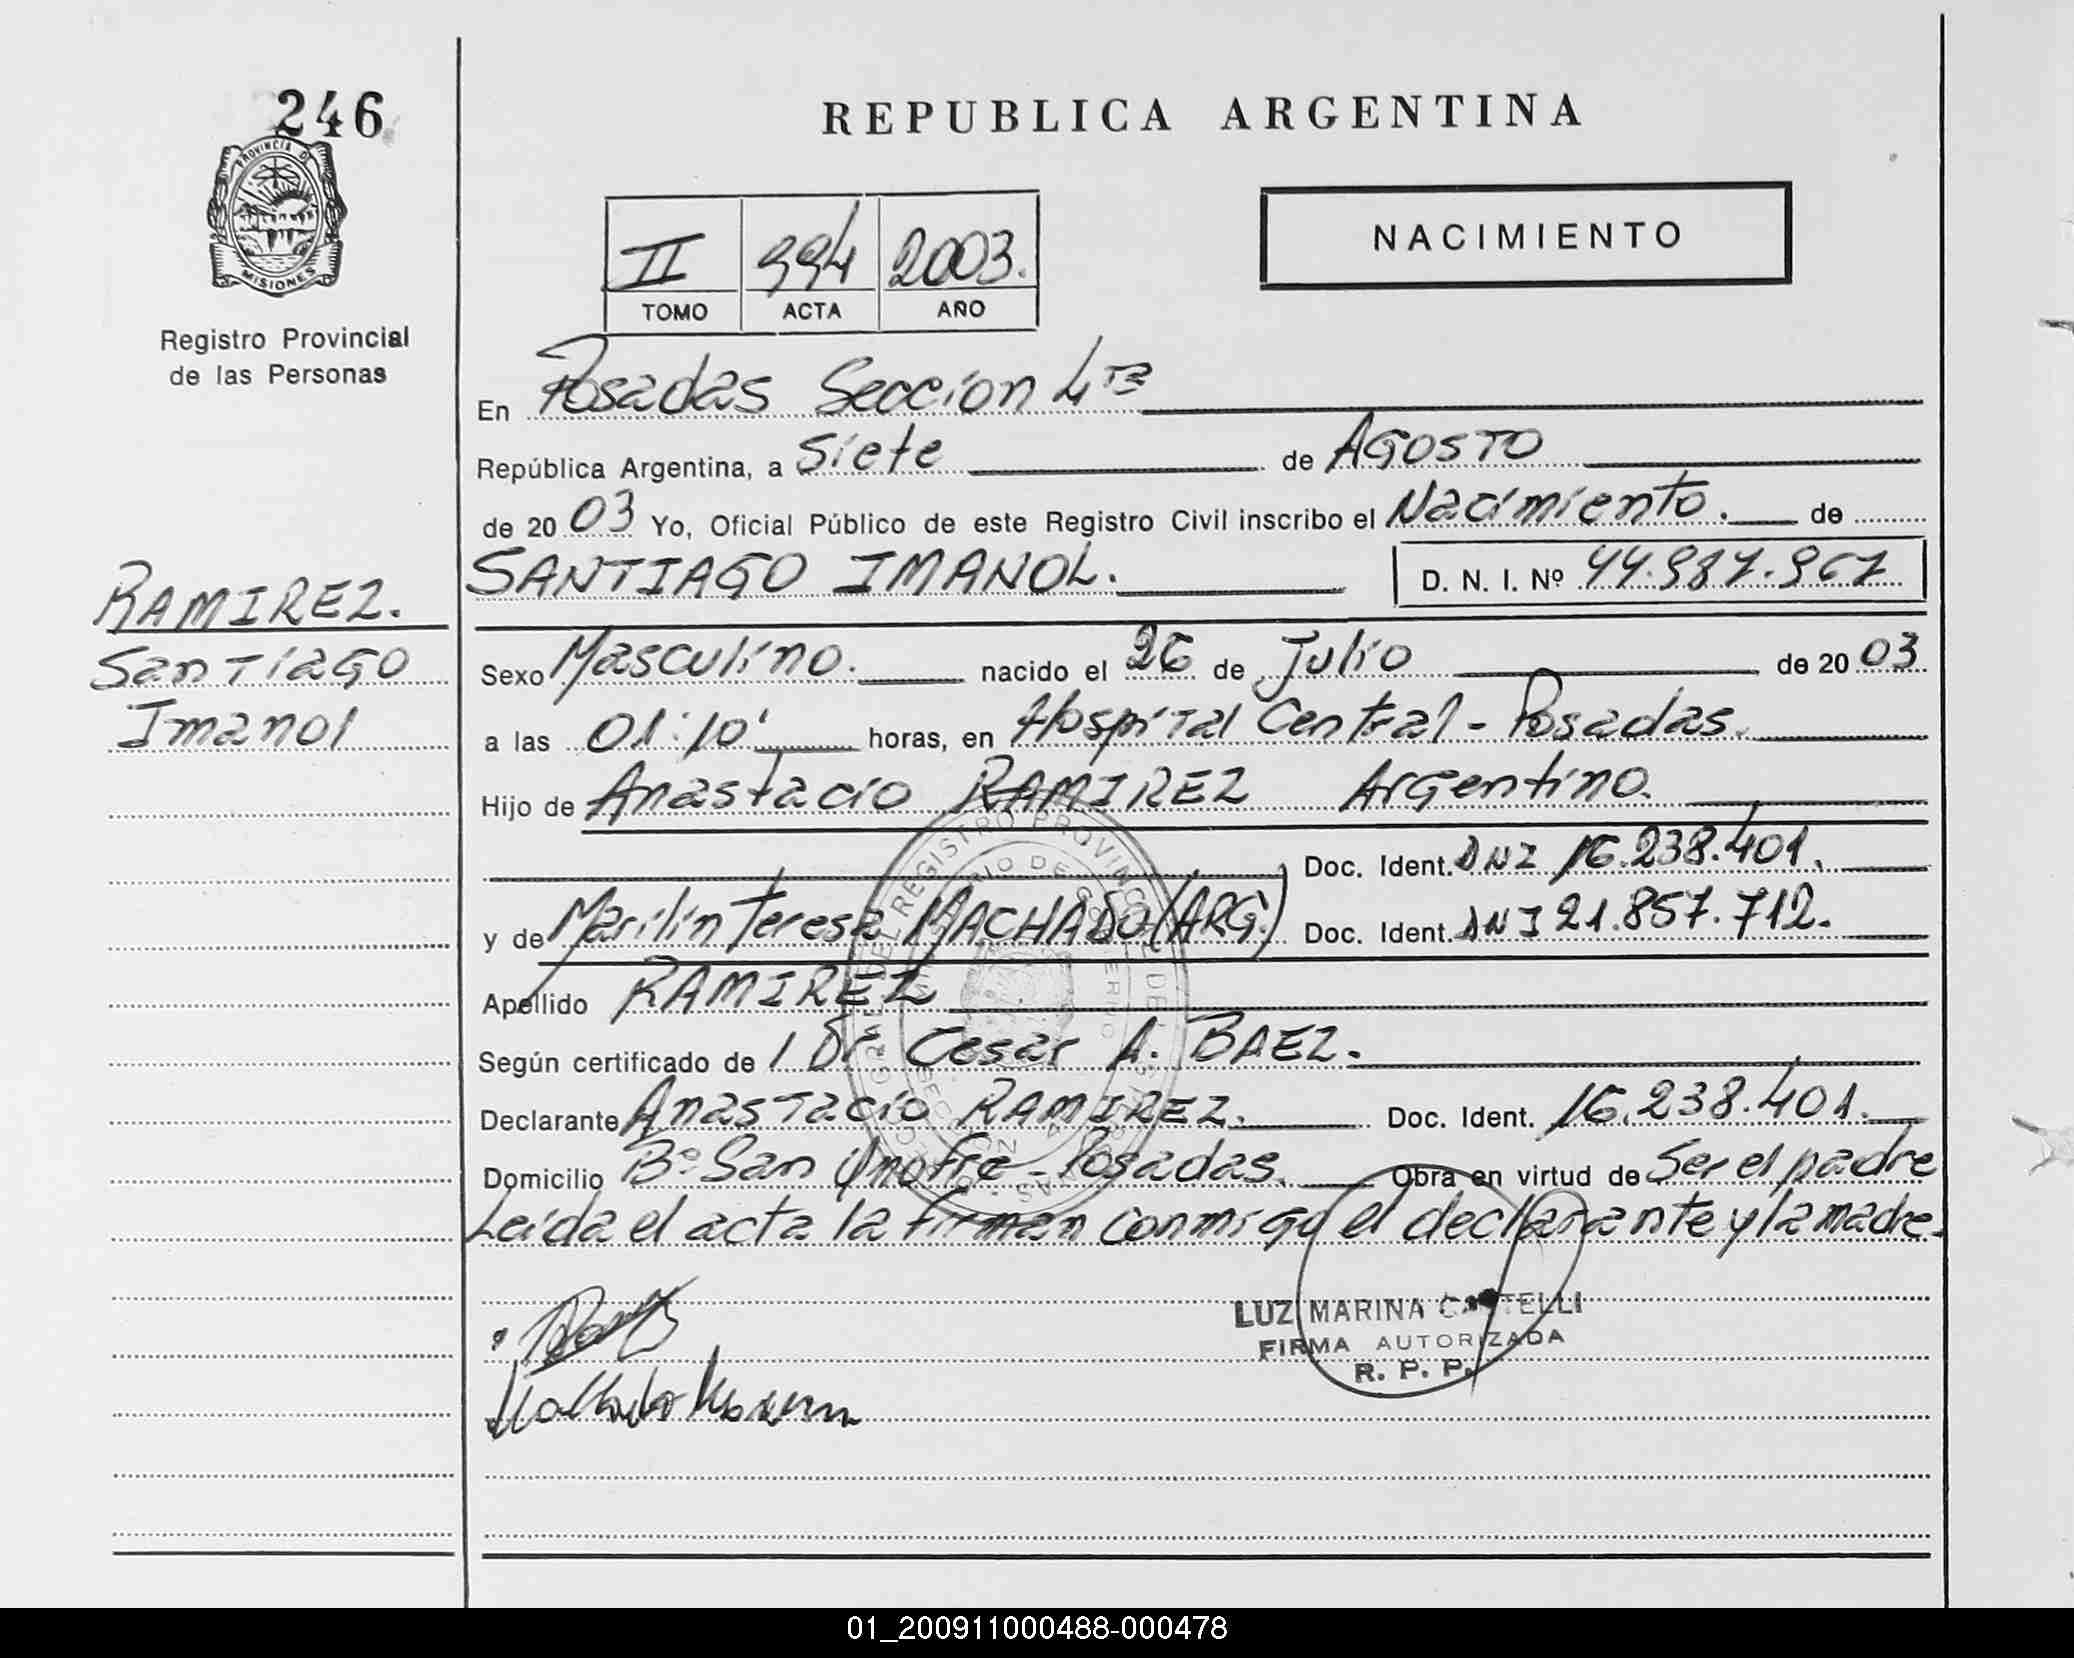 246
PROVINCIA D
MISIONES
Registro Provincial
de las Personas
RAMIREZ.
Santiago
Imanol
REPUBLICA ARGENTINA
II 994 2003.
TOMO ACTA AÑO
NACIMIENTO
En Posadas Seccion 4ta
República Argentina, a Siete de AGOSTO
de 20 03 Yo, Oficial Público de este Registro Civil inscribo el Nacimiento. de
SANTIAGO IMANOL. D. N. I. Nº 44.987.967
Sexo Masculino. nacido el 26 de Julio de 20 03
a las 01:10' horas, en Hospital Central - Posadas.
Hijo de Anastacio RAMIREZ Argentino.
Doc. Ident. DNI 16.238.401.
y de Marilin Teresa MACHADO (ARG.) Doc. Ident. DNI 21.857.712.
Apellido RAMIREZ
Según certificado de / Dr Cesar A. BAEZ.
Declarante Anastacio RAMIREZ. Doc. Ident. 16.238.401.
Domicilio Bº San Onofre - Posadas. Obra en virtud de Ser el padre
Leída el acta la firman conmigo el declarante y la madre.
LUZ MARINA CASTELLI
FIRMA AUTORIZADA
R. P. P.
01_200911000488-000478